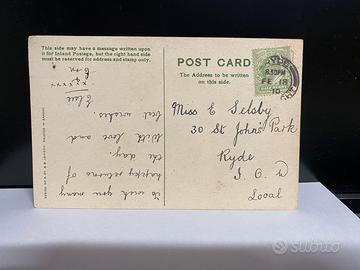 This side may have a message written upon
it for Inland Postage, but the right hand side
must be reserved for address and stamp only.
POST CARD
The Address to be written
on this side.
RYDE
8.30PM
FE 18
10
Miss E Selsby
30 St John's Park
Ryde
I.O.W
Local
To wish you many
happy returns of
the day.
With love and
best wishes.
Elsie
xxxxxx
subito